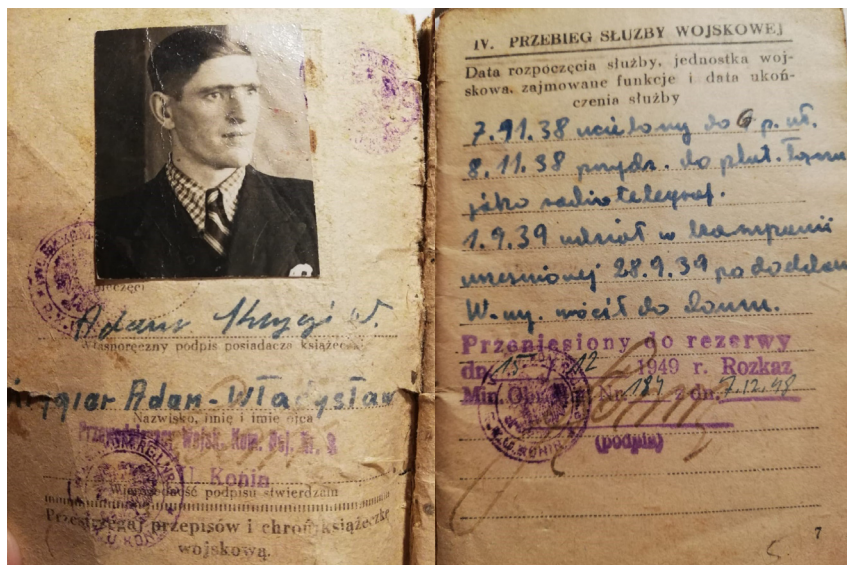 Adam W.
Własnoręczny podpis posiadacza książeczki
Adam-Władysław
Nazwisko, imię i imię ojca
Wojsk. Kom. Rej. Nr. 3
U. Konin
podpisu stwierdzam
Przestrzegaj przepisów i chroń książeczkę
wojskową.
IV. PRZEBIEG SŁUZBY WOJSKOWEJ
Data rozpoczęcia służby, jednostka woj-
skowa, zajmowane funkcje i data ukoń-
czenia służby
7.91.38 wcielony do 6 p. uł.
8.11.38 przydz. do plut. łączn
jako radiotelegraf.
1.9.39 udział w kampanii
wrześniowej 28.9.39 po
W-wy. wrócił do domu.
Przeniesiony do rezerwy
dn. 15 / 12 1949 r. Rozkaz
Min. Obr. Nar. Nr. 184 z dn. 7.12.48
(podpis)
7